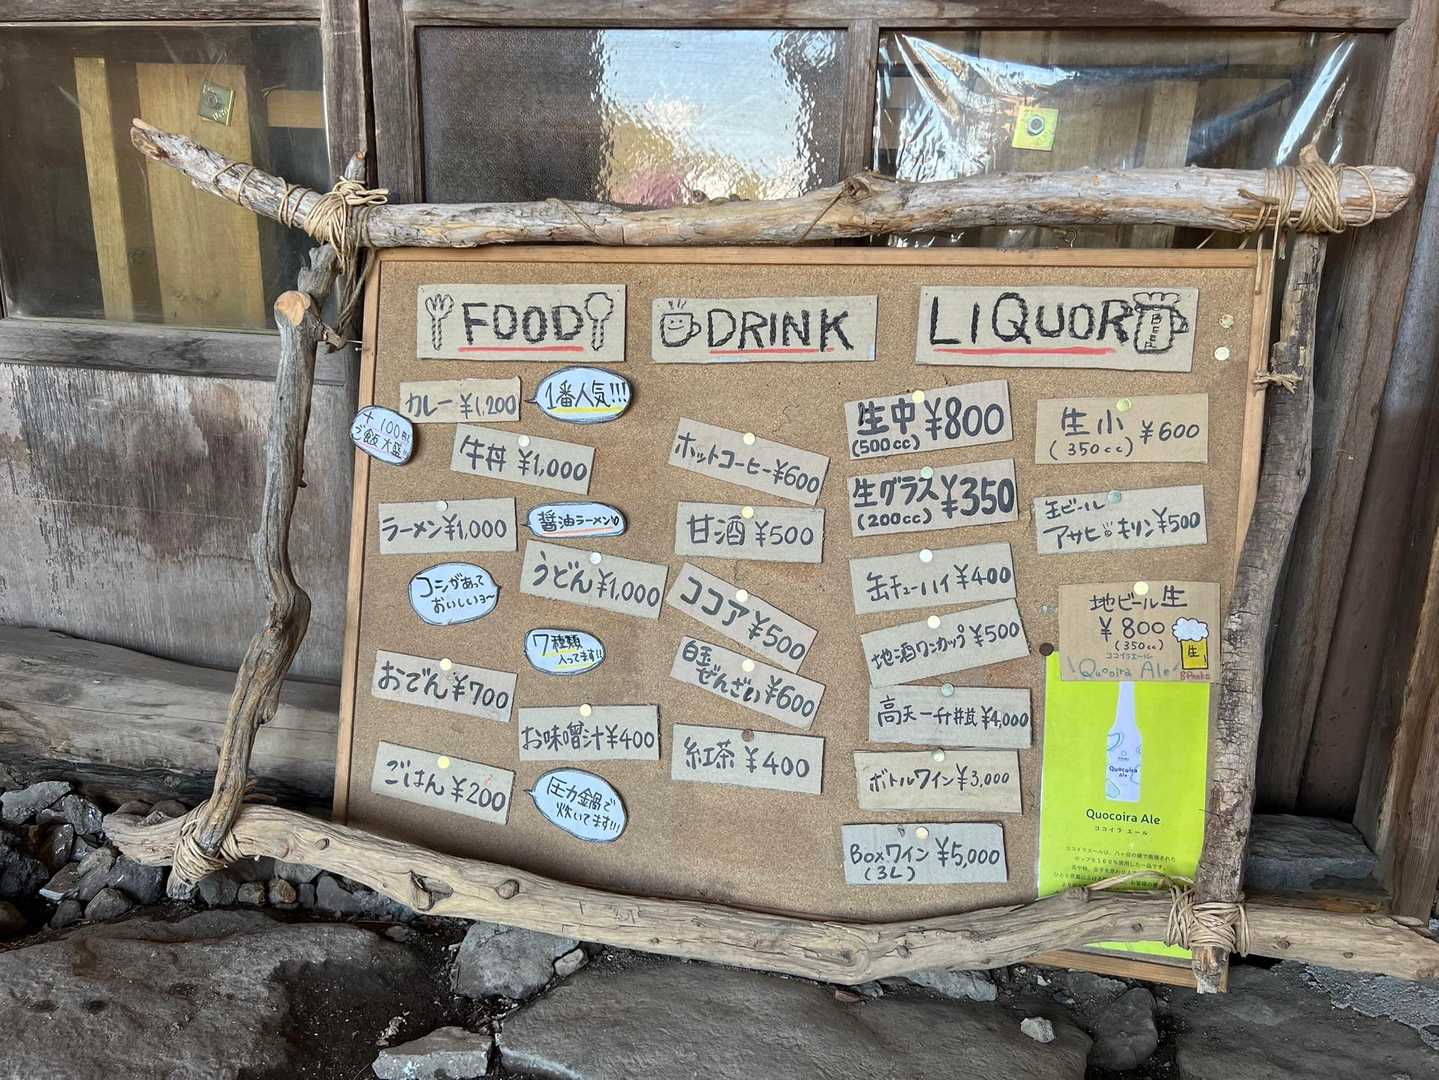 FOOD
カレー ¥1,200
1番人気!!!
+100円で
ご飯大盛!!
牛丼 ¥1,000
ラーメン¥1,000
醤油ラーメン
うどん¥1,000
コシがあって
おいしいヨ〜
7種類
入ってます!!
おでん¥700
お味噌汁¥400
ごはん¥200
圧力鍋で
炊いてます!!!
DRINK
ホットコーヒー¥600
甘酒¥500
ココア¥500
白玉
ぜんざい¥600
紅茶¥400
LIQUOR
BEER
生中¥800
(500cc)
生グラス¥350
(200cc)
缶チューハイ¥400
地酒ワンカップ¥500
高天一升瓶¥4,000
ボトルワイン¥3,000
Boxワイン¥5,000
(3L)
生小 ¥600
(350cc)
缶ビール
アサヒ キリン¥500
地ビール生
¥800
(350cc)
ココイラエール
Quocoira Ale
生
8Peaks
Quocoira
Ale
Quocoira Ale
ココイラ エール